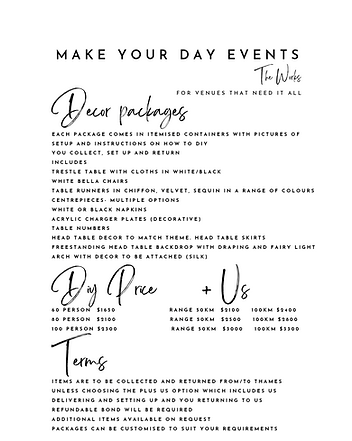 MAKE YOUR DAY EVENTS
The Works
FOR VENUES THAT NEED IT ALL
Decor packages
EACH PACKAGE COMES IN ITEMISED CONTAINERS WITH PICTURES OF
SETUP AND INSTRUCTIONS ON HOW TO DIY
YOU COLLECT, SET UP AND RETURN
INCLUDES
TRESTLE TABLE WITH CLOTHS IN WHITE/BLACK
WHITE BELLA CHAIRS
TABLE RUNNERS IN CHIFFON, VELVET, SEQUIN IN A RANGE OF COLOURS
CENTREPIECES- MULTIPLE OPTIONS
WHITE OR BLACK NAPKINS
ACRYLIC CHARGER PLATES (DECORATIVE)
TABLE NUMBERS
HEAD TABLE DECOR TO MATCH THEME. HEAD TABLE SKIRTS
FREESTANDING HEAD TABLE BACKDROP WITH DRAPING AND FAIRY LIGHT
ARCH WITH DECOR TO BE ATTACHED (SILK)
Diy Price + Us
60 PERSON $1650 RANGE 50KM $2100 100KM $2400
80 PERSON $2100 RANGE 50KM $2500 100KM $2800
100 PERSON $2300 RANGE 50KM $3000 100KM $3300
Terms
ITEMS ARE TO BE COLLECTED AND RETURNED FROM/TO THAMES
UNLESS CHOOSING THE PLUS US OPTION WHICH INCLUDES US
DELIVERING AND SETTING UP AND YOU RETURNING TO US
REFUNDABLE BOND WILL BE REQUIRED
ADDITIONAL ITEMS AVAILABLE ON REQUEST
PACKAGES CAN BE CUSTOMISED TO SUIT YOUR REQUIREMENTS